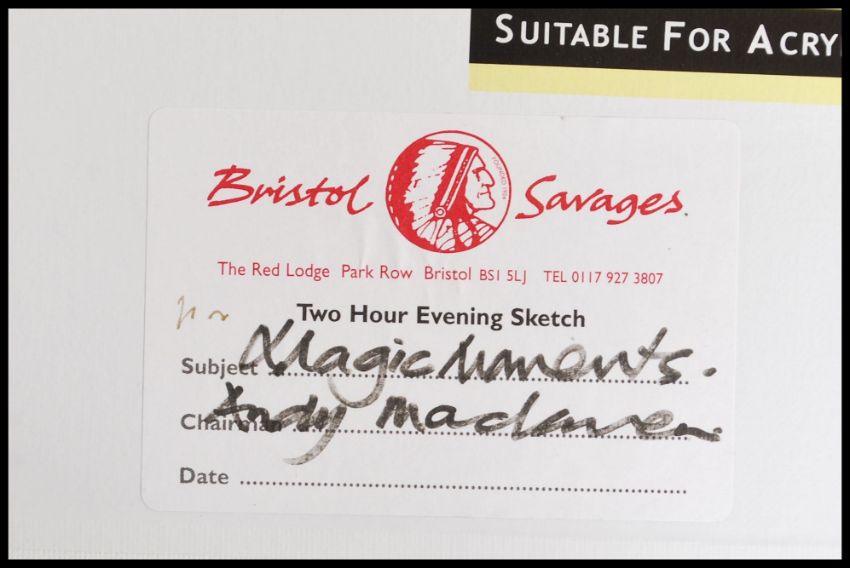 SUITABLE FOR ACRY
FOUNDED 1904
Bristol Savages
The Red Lodge Park Row Bristol BS1 5LJ TEL 0117 927 3807
Two Hour Evening Sketch
Subject Magic Moments.
Chairman Andy
Date